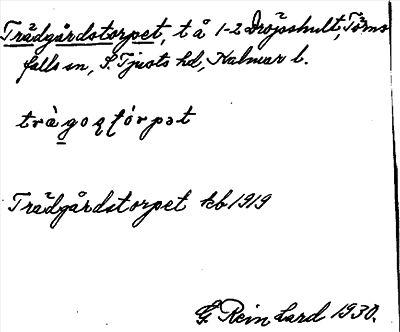 Trädgårdstorpet, t å 1-2 Dröpshult, Törns
falls sn, S. Tjusts hd, Kalmar l.
trä̀goʂtórpət
Trädgårdstorpet kb 1919
G. Reinhard 1930.